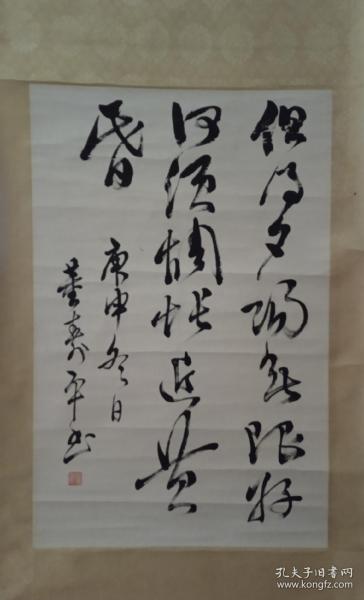 但得夕阳无限好
何须惆怅近黄
昏
庚申冬日
董寿平书
孔夫子旧书网
www.kongfz.com